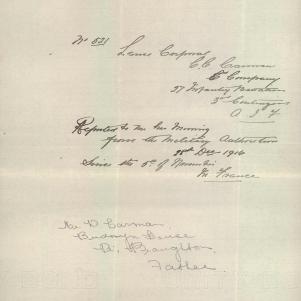 No 531
Lance Corporal
C C Carman
C Company
37 Infantry Battalion
3rd Contingent
A I F
Reported to me Missing
from the Military Authorities
Dec 1916
Since the of
in France
Mr D Carman
House
Father